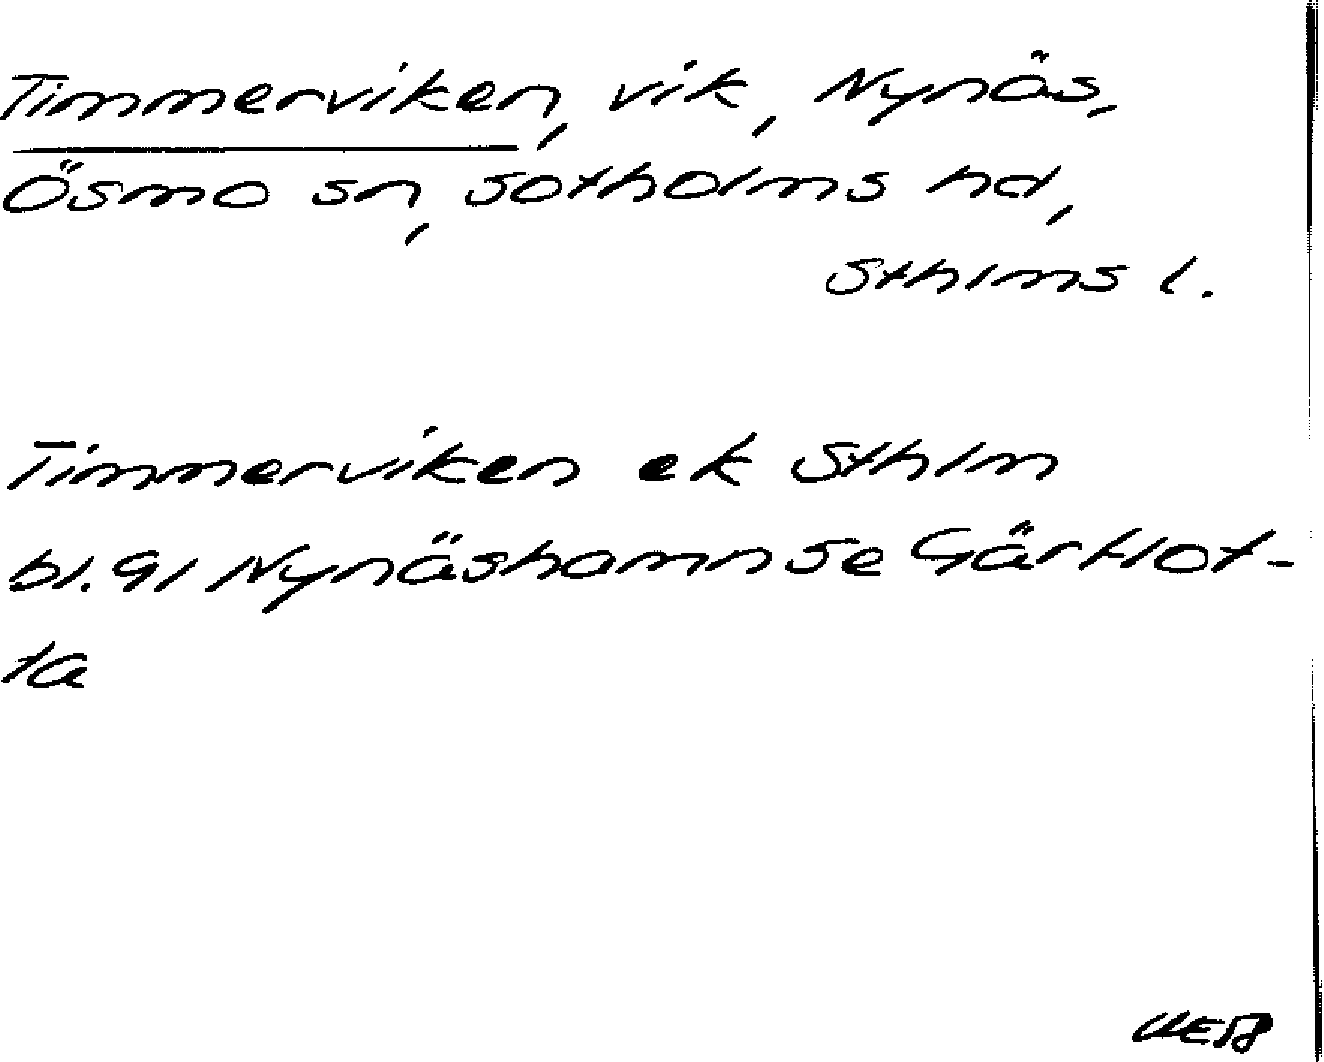 Timmerviken, vik, Nynäs,
Ösmo sn, Sotholms hd,
Sthlms l.
Timmerviken ek Sthlm
bl. 91 Nynäshamn se Gårflot-
ta